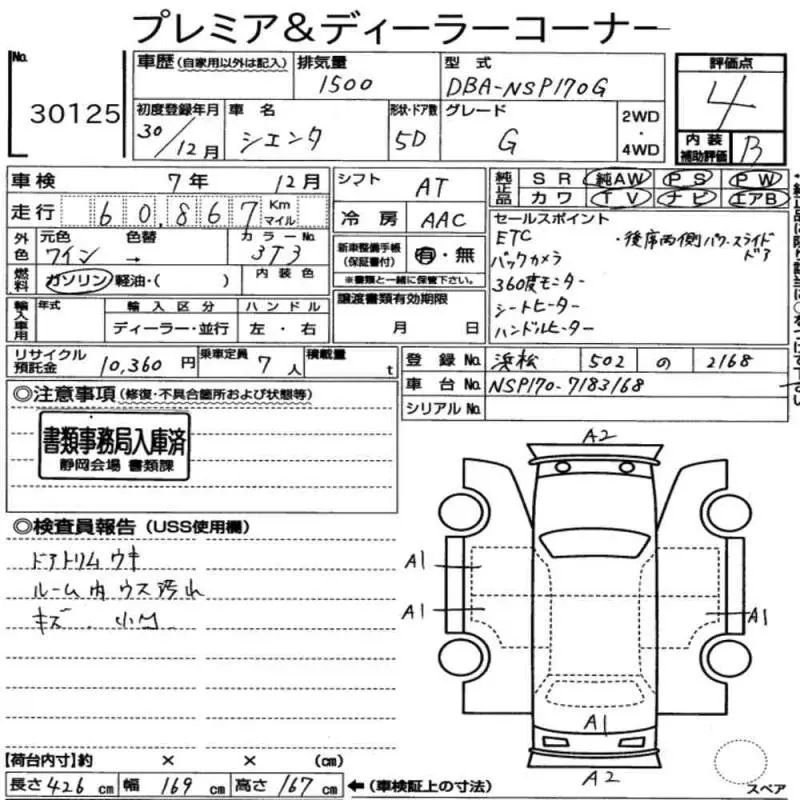 プレミア&ディーラーコーナー
No.
30125
車歴 (自家用以外は記入)
排気量
1500
型式
DBA-NSP170G
評価点
4
初度登録年月
30/12月
車名
シエンタ
形状・ドア数
5D
グレード
G
2WD
・
4WD
内装
補助評価
B
車検 7年 12月
走行 60,867 Km
マイル
外色
元色 色替 カラーNo.
ワイン → 3T3
燃料
ガソリン・軽油・( )
内装色
輸入車用
年式 輸入区分 ハンドル
ディーラー・並行 左・右
シフト AT
冷房 AAC
新車整備手帳
(保証書付)
有・無
※書類と一緒に保管下さい。
譲渡書類有効期限
月 日
純正品
SR 純AW PS PW
カワ TV ナビ エアB
セールスポイント
ETC ・後席両側パワースライドドア
バックカメラ
360度モニター
シートヒーター
ハンドルヒーター
リサイクル
預託金 10,360円
乗車定員 7人
積載量 t
登録No. 浜松 502 の 2168
車台No. NSP170-7183168
シリアルNo.
◎注意事項 (修復・不具合箇所および状態等)
書類事務局入庫済
静岡会場 書類課
◎検査員報告 (USS使用欄)
ドアトリムウキ
ルーム内ウス汚れ
キズ、小凹
A2
A1
A1
A1
A1
A2
スペア
【荷台内寸】約 × × (cm)
長さ 426 cm 幅 169 cm 高さ 167 cm ←(車検証上の寸法)